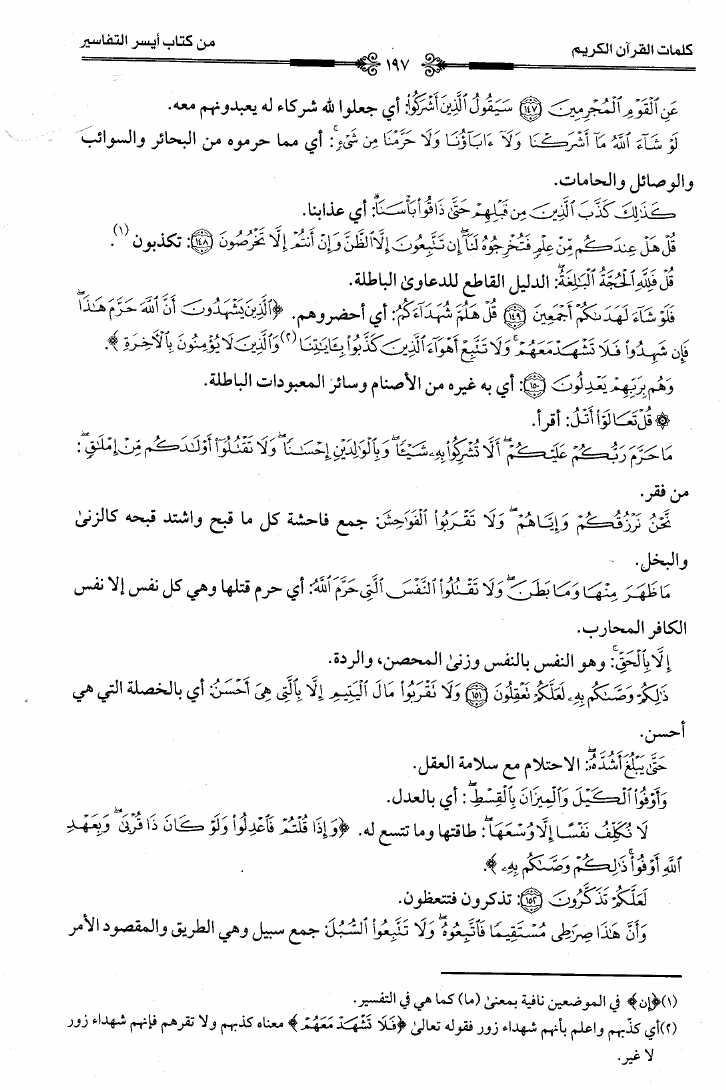 كلمات القرآن الكريم ١٩٧ من كتاب أيسر التفاسير
عَنِ ٱلْقَوْمِ ٱلْمُجْرِمِينَ ﴿١٤٧﴾ سَيَقُولُ ٱلَّذِينَ أَشْرَكُوا۟: أي جعلوا لله شركاء له يعبدونهم معه.
لَوْ شَآءَ ٱللَّهُ مَآ أَشْرَكْنَا وَلَآ ءَابَآؤُنَا وَلَا حَرَّمْنَا مِن شَىْءٍۚ: أي مما حرموه من البحائر والسوائب
والوصائل والحامات.
كَذَٰلِكَ كَذَّبَ ٱلَّذِينَ مِن قَبْلِهِمْ حَتَّىٰ ذَاقُوا۟ بَأْسَنَاۗ: أي عذابنا.
قُلْ هَلْ عِندَكُم مِّنْ عِلْمٍ فَتُخْرِجُوهُ لَنَآۖ إِن تَتَّبِعُونَ إِلَّا ٱلظَّنَّ وَإِنْ أَنتُمْ إِلَّا تَخْرُصُونَ ﴿١٤٨﴾: تكذبون (١).
قُلْ فَلِلَّهِ ٱلْحُجَّةُ ٱلْبَـٰلِغَةُۖ: الدليل القاطع للدعاوى الباطلة.
فَلَوْ شَآءَ لَهَدَىٰكُمْ أَجْمَعِينَ ﴿١٤٩﴾ قُلْ هَلُمَّ شُهَدَآءَكُمُ: أي أحضروهم. ﴿ٱلَّذِينَ يَشْهَدُونَ أَنَّ ٱللَّهَ حَرَّمَ هَـٰذَاۖ
فَإِن شَهِدُوا۟ فَلَا تَشْهَدْ مَعَهُمْۚ وَلَا تَتَّبِعْ أَهْوَآءَ ٱلَّذِينَ كَذَّبُوا۟ بِـَٔايَـٰتِنَا (٢) وَٱلَّذِينَ لَا يُؤْمِنُونَ بِٱلْـَٔاخِرَةِ﴾.
وَهُم بِرَبِّهِمْ يَعْدِلُونَ ﴿١٥٠﴾: أي به غيره من الأصنام وسائر المعبودات الباطلة.
۞ قُلْ تَعَالَوْا۟ أَتْلُ: أقرأ.
مَا حَرَّمَ رَبُّكُمْ عَلَيْكُمْۖ أَلَّا تُشْرِكُوا۟ بِهِۦ شَيْـًٔاۖ وَبِٱلْوَٰلِدَيْنِ إِحْسَـٰنًاۖ وَلَا تَقْتُلُوٓا۟ أَوْلَـٰدَكُم مِّنْ إِمْلَـٰقٍۖ:
من فقر.
نَّحْنُ نَرْزُقُكُمْ وَإِيَّاهُمْۖ وَلَا تَقْرَبُوا۟ ٱلْفَوَٰحِشَ: جمع فاحشة كل ما قبح واشتد قبحه كالزنىٰ
والبخل.
مَا ظَهَرَ مِنْهَا وَمَا بَطَنَۖ وَلَا تَقْتُلُوا۟ ٱلنَّفْسَ ٱلَّتِى حَرَّمَ ٱللَّهُ: أي حرم قتلها وهي كل نفس إلا نفس
الكافر المحارب.
إِلَّا بِٱلْحَقِّۚ: وهو النفس بالنفس وزنىٰ المحصن، والردة.
ذَٰلِكُمْ وَصَّىٰكُم بِهِۦ لَعَلَّكُمْ تَعْقِلُونَ ﴿١٥١﴾ وَلَا تَقْرَبُوا۟ مَالَ ٱلْيَتِيمِ إِلَّا بِٱلَّتِى هِىَ أَحْسَنُ: أي بالخصلة التي هي
أحسن.
حَتَّىٰ يَبْلُغَ أَشُدَّهُۥۖ: الاحتلام مع سلامة العقل.
وَأَوْفُوا۟ ٱلْكَيْلَ وَٱلْمِيزَانَ بِٱلْقِسْطِۖ: أي بالعدل.
لَا نُكَلِّفُ نَفْسًا إِلَّا وُسْعَهَاۖ: طاقتها وما تتسع له. ﴿وَإِذَا قُلْتُمْ فَٱعْدِلُوا۟ وَلَوْ كَانَ ذَا قُرْبَىٰۖ وَبِعَهْدِ
ٱللَّهِ أَوْفُوا۟ۚ ذَٰلِكُمْ وَصَّىٰكُم بِهِۦ﴾.
لَعَلَّكُمْ تَذَكَّرُونَ ﴿١٥٢﴾: تذكرون فتتعظون.
وَأَنَّ هَـٰذَا صِرَٰطِى مُسْتَقِيمًا فَٱتَّبِعُوهُۖ وَلَا تَتَّبِعُوا۟ ٱلسُّبُلَ: جمع سبيل وهي الطريق والمقصود الأمر
(١) ﴿إن﴾ في الموضعين نافية بمعنىٰ (ما) كما هي في التفسير.
(٢) أي كذّبهم واعلم بأنهم شهداء زور فقوله تعالىٰ ﴿فَلَا تَشْهَدْ مَعَهُمْ﴾ معناه كذبهم ولا تقرهم فإنهم شهداء زور
لا غير.